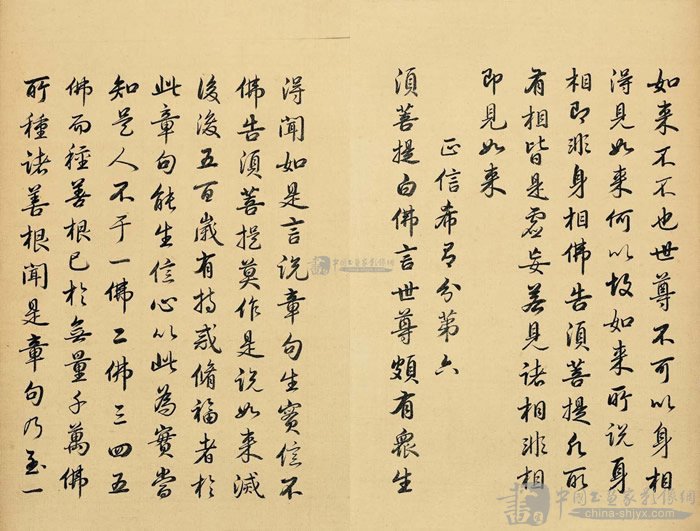 如来不不也世尊不可以身相
得見如来何以故如来所说身
相即非身相佛告須菩提凡所
有相皆是虚妄若見諸相非相
即見如来
正信希有分第六
須菩提白佛言世尊頗有衆生
得聞如是言説章句生實信不
佛告須菩提莫作是说如来滅
後後五百歲有持戒脩福者於
此章句能生信心以此為實當
知是人不于一佛二佛三四五
佛而種善根已於無量千萬佛
所種诸善根聞是章句乃至一
中国书画家影像網
中国书画家影像網
china-shjyx.com